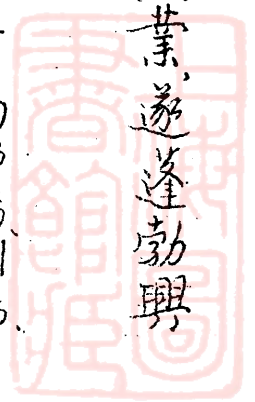 業,遂蓬勃興
上海圖
書館藏